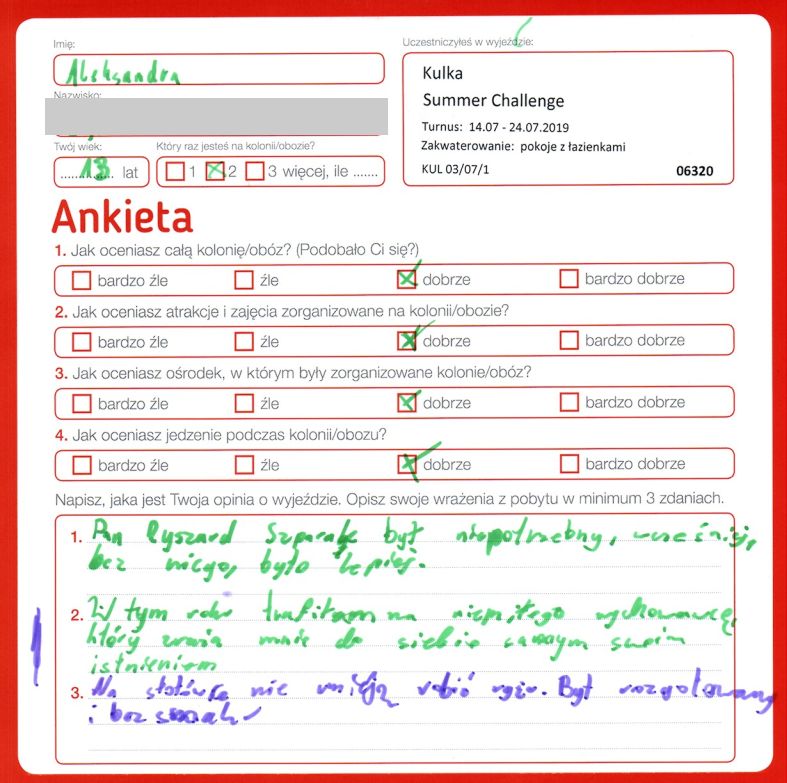 Imię:
Aleksandra
Uczestniczyłeś w wyjeździe:
Nazwisko:
Kulka
Summer Challenge
Turnus: 14.07 - 24.07.2019
Zakwaterowanie: pokoje z łazienkami
KUL 03/07/1
06320
Twój wiek:
Który raz jesteś na kolonii/obozie?
13 lat
1 2 3 więcej, ile .......
Ankieta
1. Jak oceniasz całą kolonię/obóz? (Podobało Ci się?)
bardzo źle źle dobrze bardzo dobrze
2. Jak oceniasz atrakcje i zajęcia zorganizowane na kolonii/obozie?
bardzo źle źle dobrze bardzo dobrze
3. Jak oceniasz ośrodek, w którym były zorganizowane kolonie/obóz?
bardzo źle źle dobrze bardzo dobrze
4. Jak oceniasz jedzenie podczas kolonii/obozu?
bardzo źle źle dobrze bardzo dobrze
Napisz, jaka jest Twoja opinia o wyjeździe. Opisz swoje wrażenia z pobytu w minimum 3 zdaniach.
1. Pan Ryszard był niepotrzebny, wcześniej,
bez niego, było lepiej.
2. W tym roku trafiłam na niemiłego wychowawcę,
który zraża mnie do siebie samym swoim
istnieniem
3. Na stołówce nie umieją robić ryżu. Był rozgotowany
i bez smaku